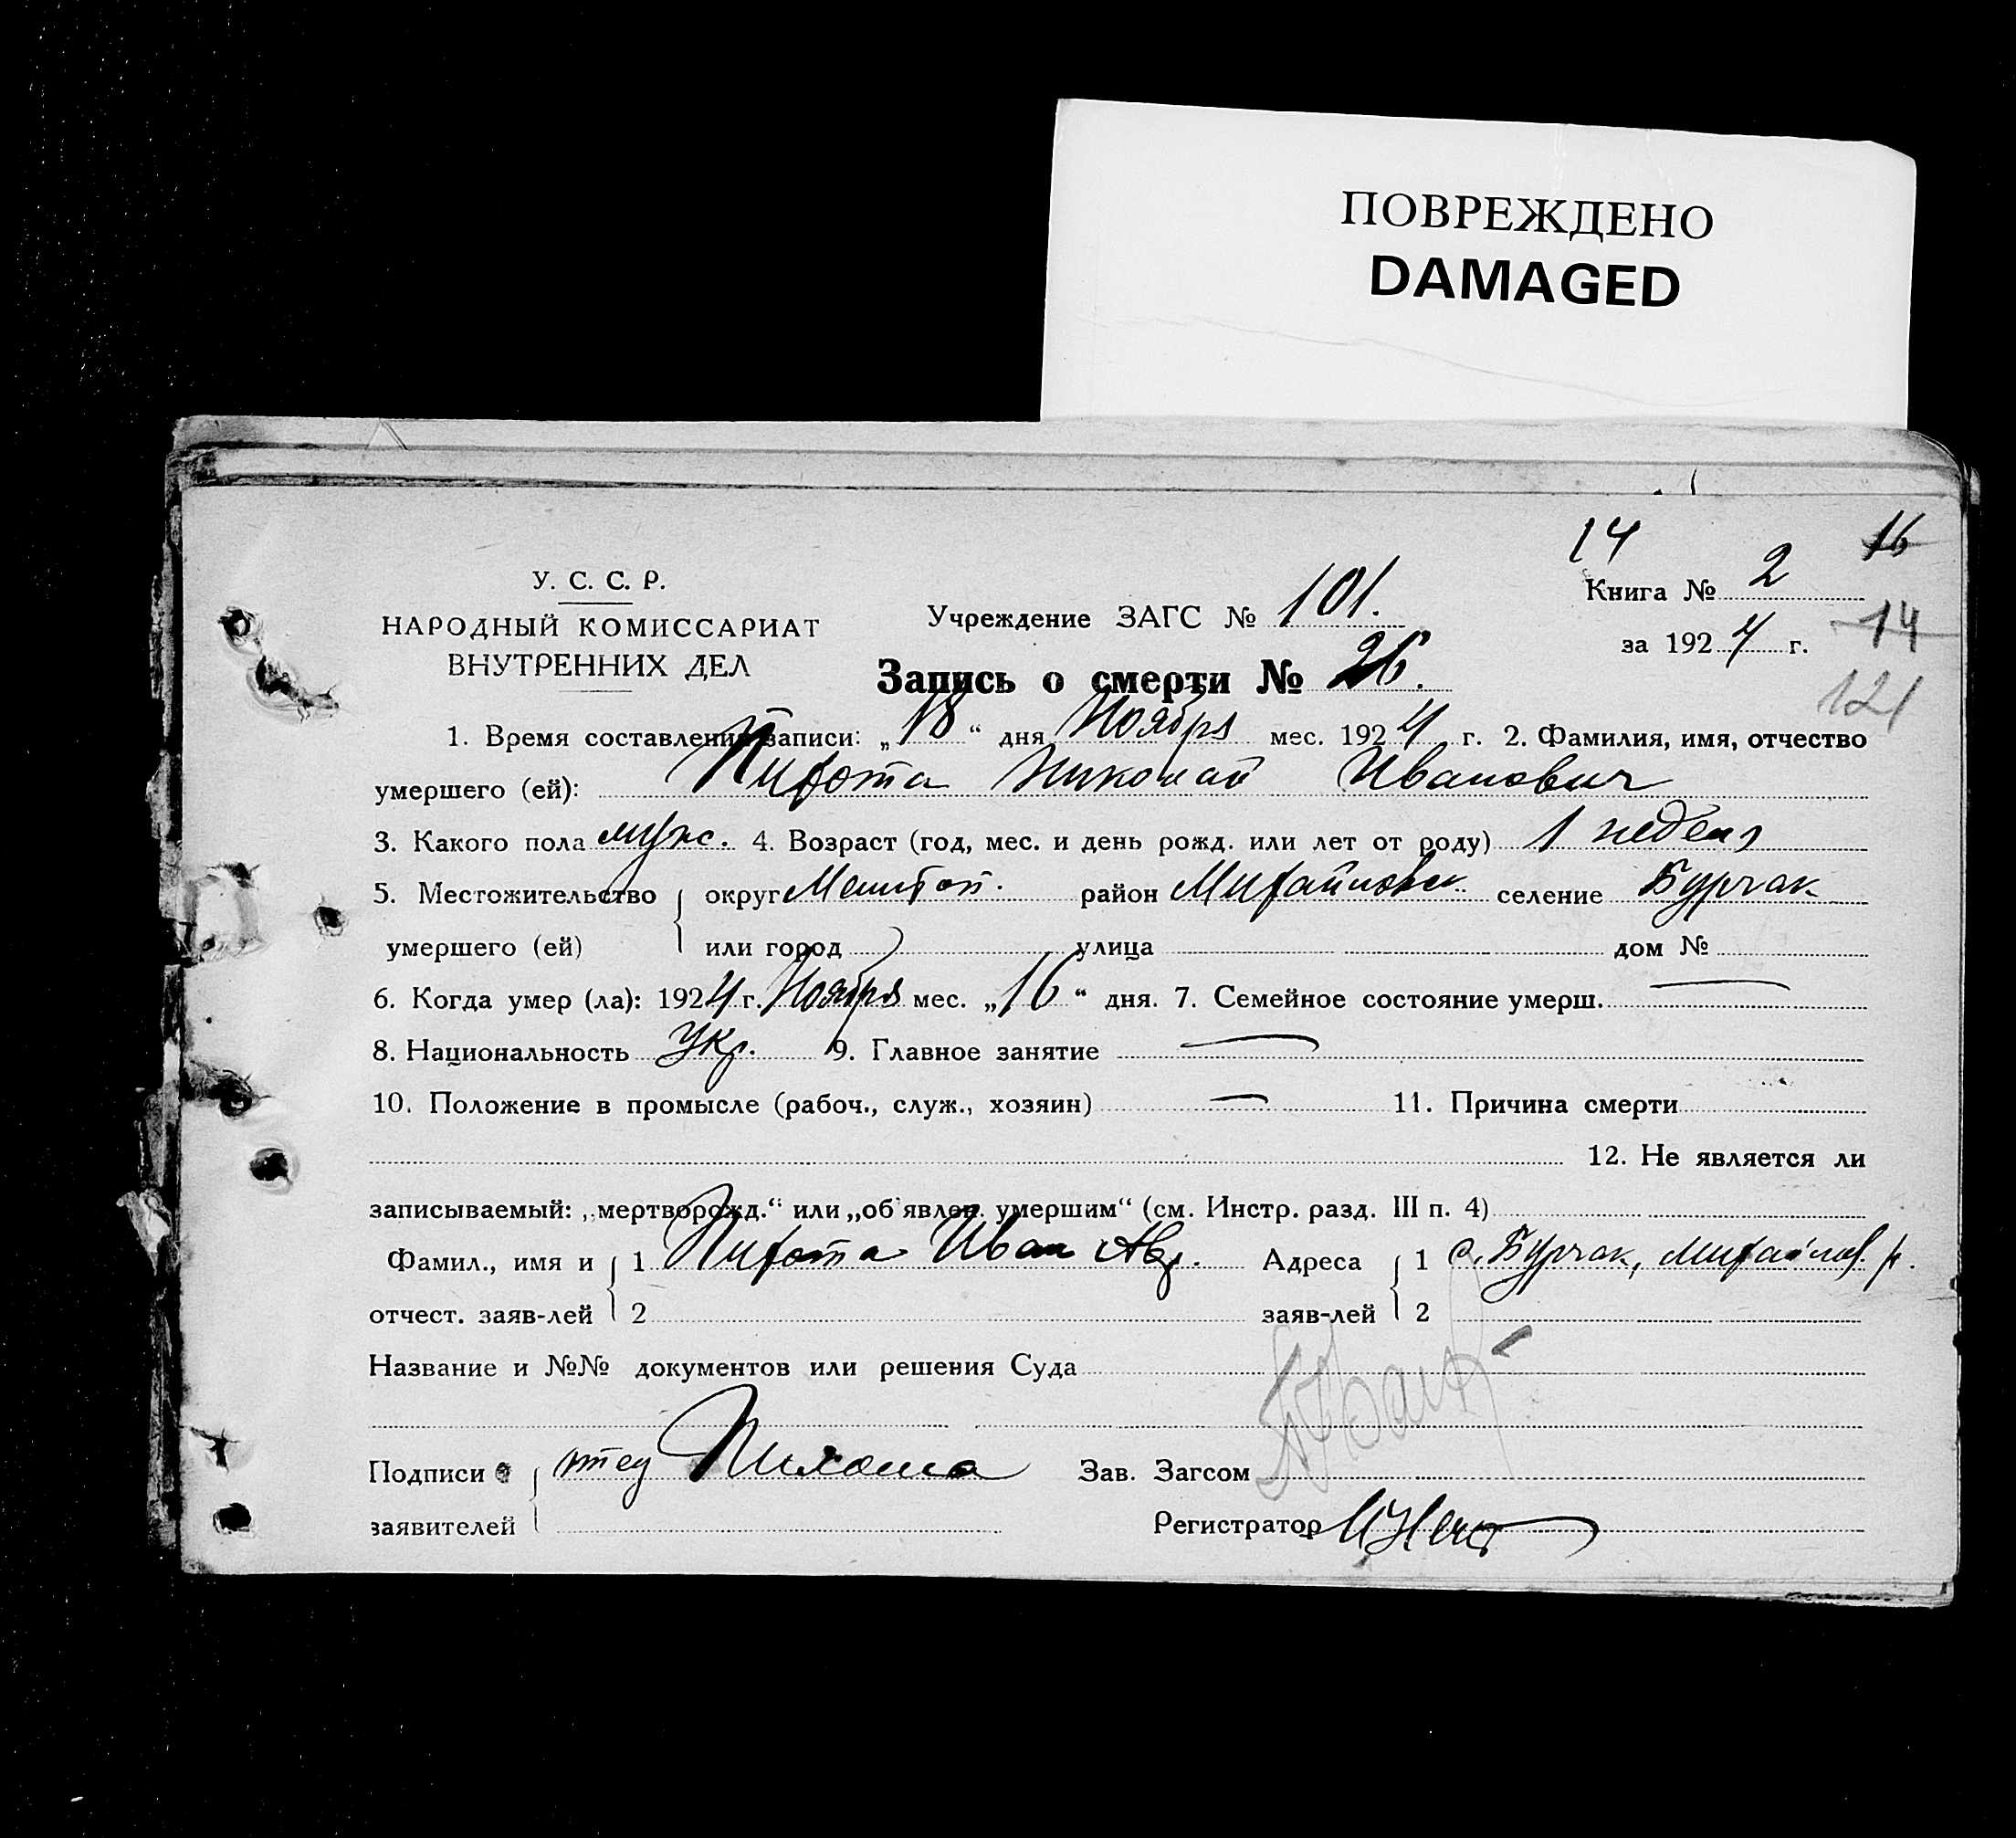 ПОВРЕЖДЕНО
DAMAGED
14 16
У. С. С. Р.
НАРОДНЫЙ КОМИССАРИАТ
ВНУТРЕННИХ ДЕЛ
Учреждение ЗАГС № 101.
Книга № 2
за 1924 г. 14
Запись о смерти № 26.
121
1. Время составления записи: „18“ дня Ноября мес. 1924 г. 2. Фамилия, имя, отчество
умершего (ей): Пихота Николай Иванович
3. Какого пола муж. 4. Возраст (год, мес. и день рожд. или лет от роду) 1 недел
5. Местожительство округ Мелитоп. район Михайловск. селение Бурчак
умершего (ей) или город улица дом №
6. Когда умер (ла): 1924 г. Ноября мес. „16“ дня. 7. Семейное состояние умерш. —
8. Национальность Укр. 9. Главное занятие —
10. Положение в промысле (рабоч., служ., хозяин) — 11. Причина смерти
12. Не является ли
записываемый: „мертворожд.“ или „об'явлен. умершим“ (см. Инстр. разд. III п. 4)
Фамил., имя и 1 Пихота Иван Адреса 1 с. Бурчак, Михайлов. р.
отчест. заяв-лей 2 заяв-лей 2
Название и №№ документов или решения Суда
Подписи Пихота Зав. Загсом
заявителей Регистратор